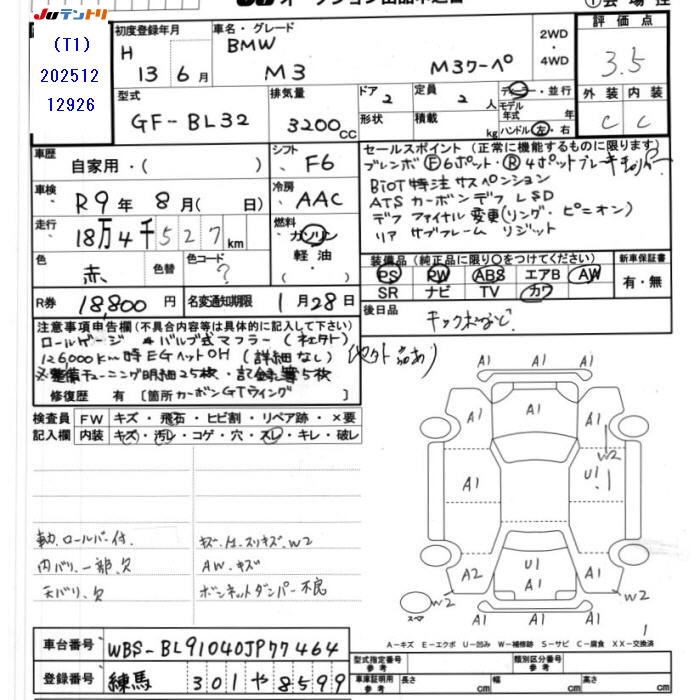 JUテントリ
(T1)
202512
12926
初度登録年月
H
13 6月
車名・グレード
BMW
M3 M3クーペ
2WD
・
4WD
評価点
3.5
外装 内装
C C
型式
GF-BL32
排気量
3200cc
ドア
2
形状
定員
2 人
積載
kg
ディーラー・並行
モデル
年式 年
ハンドル 左・右
車歴
自家用・( )
シフト
F6
車検
R9年 8月( 日)
冷房
AAC
走行
18万4千527km
燃料
ガソリン
軽油
( )
色
赤
色替
色コード
?
R券 18,800円
名変通知期限 1月28日
セールスポイント (正常に機能するものに限ります)
ブレンボ Ⓕ6ポット・Ⓡ4ポットブレーキキャリパー
BiOT特注サスペンション
ATS カーボンデフ LSD
デフ ファイナル変更(リング・ピニオン)
リア サブフレーム リジット
装備品 (純正品に限り○をつけてください)
PS PW ABS エアB AW
SR ナビ TV カワ
新車保証書
有・無
後日品
注意事項申告欄 (不具合内容等は具体的に記入して下さい)
ロールゲージ バルブ式マフラー
126,000km時 EGヘットOH (詳細なし)
※整備チューニング明細25枚・記録簿5枚
修復歴 有 〔箇所 カーボンGTウイング 〕
検査員 FW キズ・飛石・ヒビ割・リペア跡・×要
記入欄 内装 キズ・汚レ・コゲ・穴・スレ・キレ・破レ
A1 A1 A1
A1 A1 A1
W2
A1 U1
A2 U1 A1 A1
W2 W2
A1 A1 A1
スペア
ロールバー付
内バリ、一部、欠
天バリ、欠
キズ・A・スリキズ・W2
AW・キズ
ボンネットダンパー不良
A-キズ E-エクボ U-凹み W-補修跡 S-サビ C-腐食 XX-交換済
車台番号 WBS-BL91040JP77464
登録番号 練馬 301 や 8599
型式指定番号
参考
類別区分番号
参考
車庫証明用
参考
長さ cm 幅 cm 高さ cm